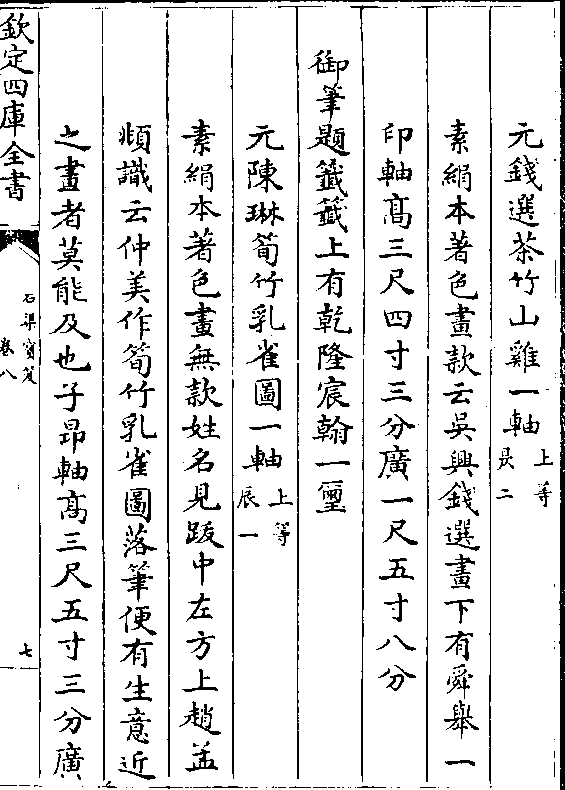 元錢選茶竹山雞一軸 上等
昃二
素絹本著色畫款云吳興錢選畫下有舜舉一
印軸髙三尺四寸三分廣一尺五寸八分
御筆題籤籤上有乾隆宸翰一璽
元陳琳筍竹乳雀圖一軸 上等
辰一
素絹本著色畫無款姓名見跋中左方上趙孟
頫識云仲美作筍竹乳雀圖落筆便有生意近
之畫者莫能及也子昂軸髙三尺五寸三分廣
欽定四庫全書
石渠寶笈
卷八
七